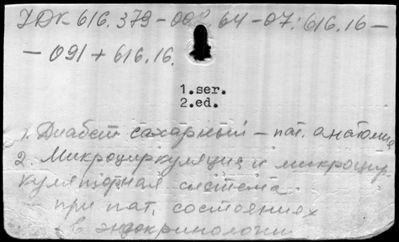 УДК 616.379-008.64-07:616.16-
-091+616.16.
1.ser.
2.ed.
1. Диабет сахарный - пат. анатомия
2. Микроциркуляция и микроцир-
куляторная система.
при пат. состояниях
в эндокринологии